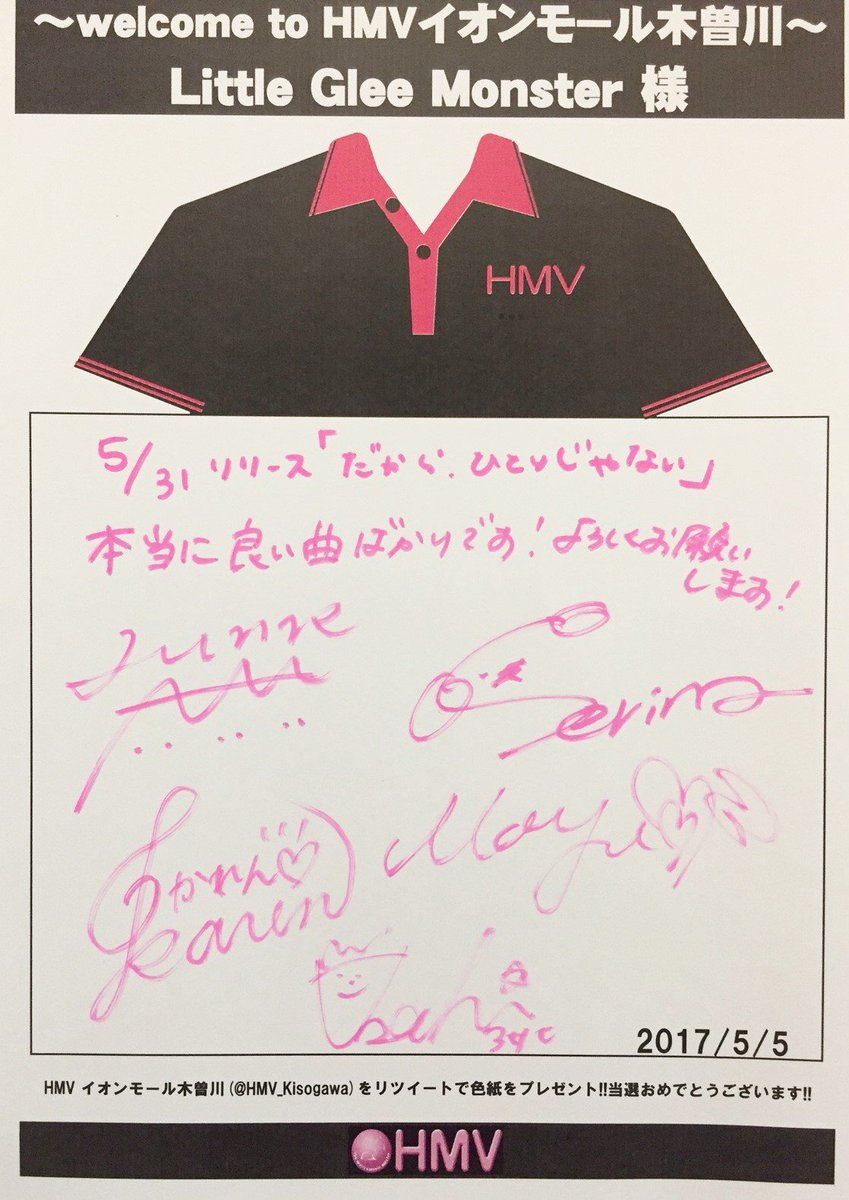 ～welcome to HMVイオンモール木曽川～
Little Glee Monster 様
HMV
5/31 リリース「だから、ひとりじゃない」
本当に良い曲ばかりです！よろしくお願い
します！
Serina
かれん♡
Karen
Mayu
Asahi
2017/5/5
HMV イオンモール木曽川(@HMV_Kisogawa)をリツイートで色紙をプレゼント!!当選おめでとうございます!!
HMV